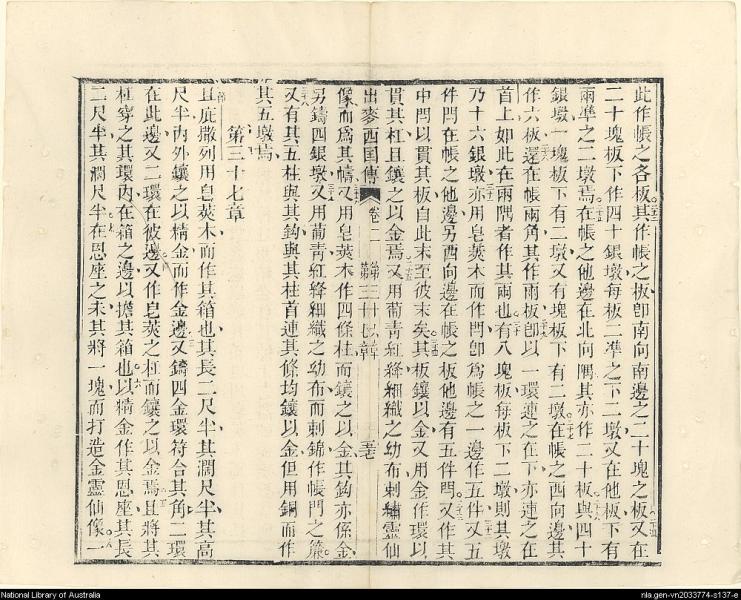 此作帳之各板其作帳之板卽南向南邊之二十塊之板又在
二十塊板下作四十銀墩每板二凖之下二墩又在他板下有
兩凖之二墩焉在帳之他邊在北向隅其亦作二十板與四十
銀墩一塊板下有二墩又有塊板下有二墩在帳之西向邊其
作六板還在帳兩角其作兩板卽以一環連之在下亦連之在
首上如此在兩隅者作其兩也有八塊板每板下二墩則其墩
乃十六銀墩亦用皂莢木而作閂卽爲帳之一邊作五件又五
件閂在帳之他邊另西向邊在帳之板他邊有五件閂又作其
中閂以貫其板自此末至彼末矣其板鑲以金又用金作環以
貫其杠且鑲之以金焉又用葡靑紅絳細織之幼布刺繡靈仙
出麥西國傳 卷二 第三十六章 第三十七章 五
像而爲其幃又用皂莢木作四條柱而鑲之以金其鈎亦係金
另鑄四銀墩又用葡靑紅絳細織之幼布而刺錦作帳門之簾
又有其五柱與其鈎與其柱首連其條均鑲以金但用銅而作
其五墩焉
第三十七章
且庇撒列用皂莢木而作其箱也其長二尺半其濶尺半其高
尺半內外鑲之以精金而作金邊又鑄四金環符合其角二環
在此邊又二環在彼邊又作皂莢之杠而鑲之以金焉且將其
杠穿之其環內在箱之邊以擔其箱也以精金作其恩座其長
二尺半其濶尺半在恩座之末其將一塊而打造金靈仙像一